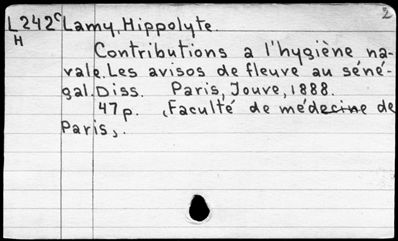 2
L242c Lamy, Hippolyte.
H
Contributions a l'hygiène na-
vale. Les avisos de fleuve au séné-
gal. Diss. Paris, Jouve, 1888.
47p. , Faculté de médecine de
Paris,.